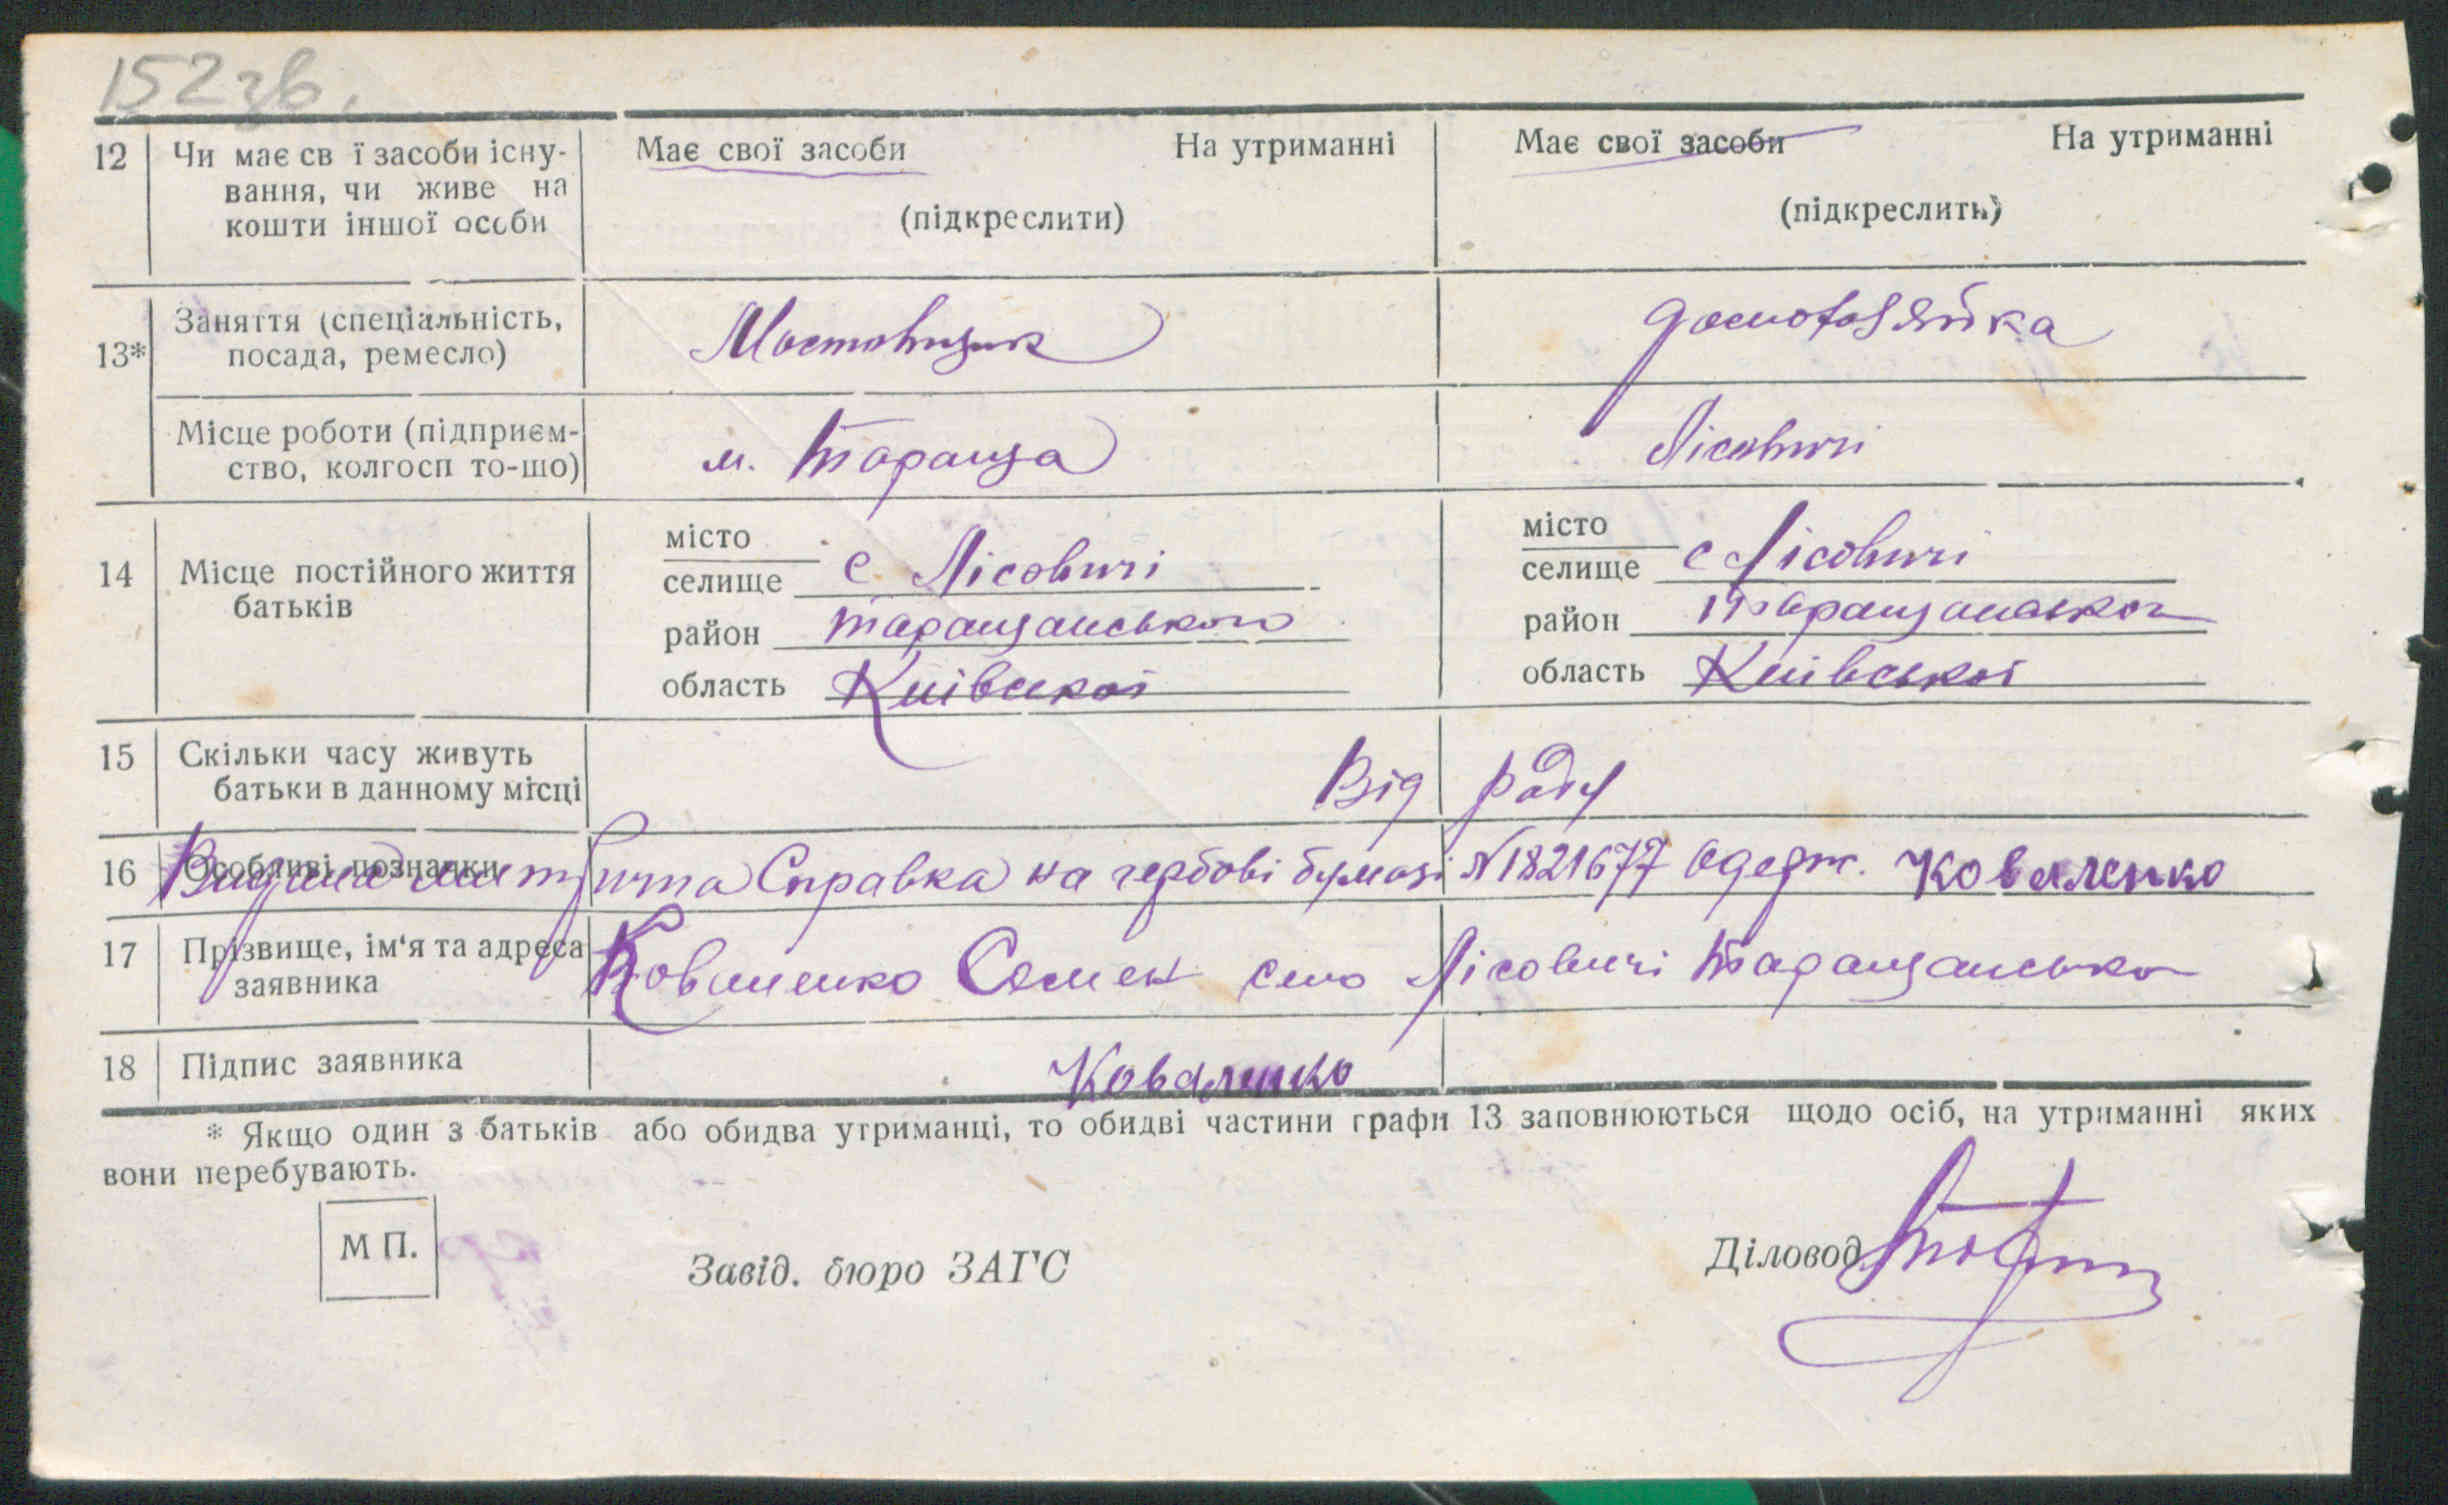 152 зв.
12 Чи має св ї засоби існу- Має свої засоби На утриманні Має свої засоби На утриманні
вання, чи живе на
кошти іншої особи (підкреслити) (підкреслить)
13* Заняття (спеціальність, Мостовщик домохазяйка
посада, ремесло)
Місце роботи (підприєм- м. Тараща Лісовичі
ство, колгосп то-що)
14 Місце постійного життя
батьків
місто
селище с Лісовичі
район Таращанського
область Київської
місто
селище с Лісовичі
район Таращанського
область Київської
15 Скільки часу живуть Від роду
батьки в данному місці
16 Особливі позначки Справка на гербові бумазі №1821677 Одерж. Коваленко
17 Прізвище, ім'я та адреса Коваленко Семен село Лісовичі Таращансько
заявника
18 Підпис заявника Коваленко
* Якщо один з батьків або обидва утриманці, то обидві частини графи 13 заповнюються щодо осіб, на утриманні яких
вони перебувають.
М П.
Завід. бюро ЗАГС Діловод